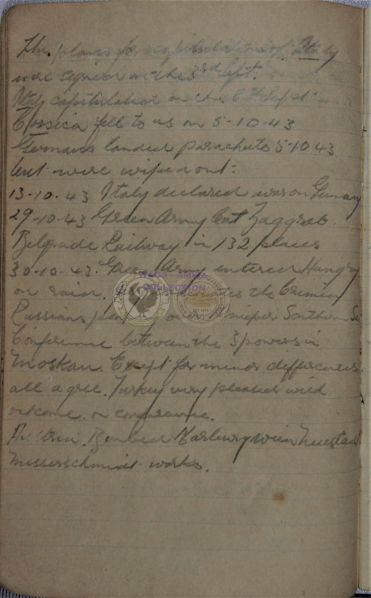 The plans for capitulation of Italy
was signed on the 3rd Sept.
Italy capitulation on the 8th Sept:
Corsica fell to us on 5-10-43
Germans landed parachutes 5-10-43
but were wiped out:
13-10-43 Italy declared war on Germany
29-10-43 Green Army cut Zaggreb
Belgrade Railway in 132 places
30-10-43. Green Army entered Hungry
on raior. the Crimea
Russians over Dnieper Southern
Conference between the 3 powers in
Moskau. Except for minor differences
all agree. Turkey very pleased with
outcome on conference.
Bombed Marburg wien Neustad
Messerschmidt works.